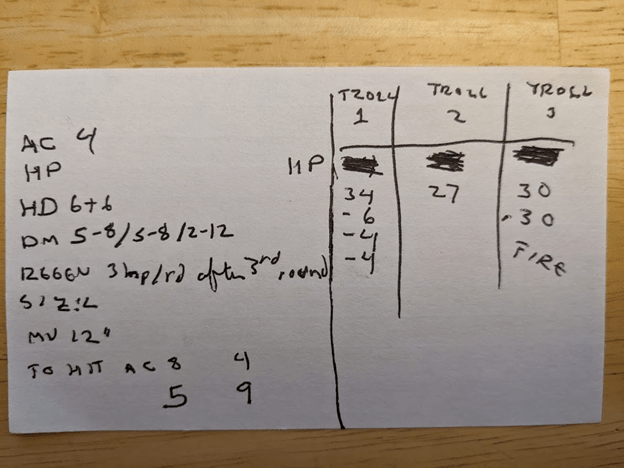 AC 4
HP
HD 6+6
DM 5-8/5-8/2-12
REGEN 3hp/rd after 3rd round
SIZ:L
MV 12"
TO HIT AC 8 4
5 9
TROLL 1 TROLL 2 TROLL 3
HP
34 27 30
-6 -30
-4 FIRE
-4